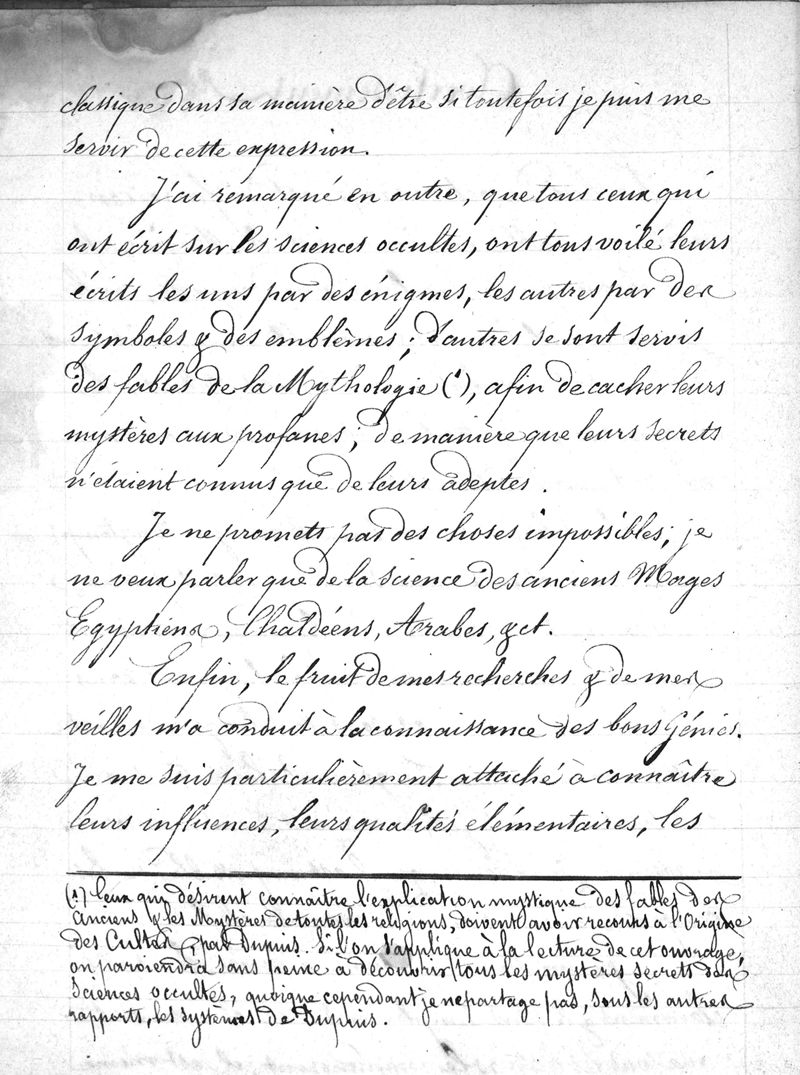 classique dans sa manière d'être si toutefois je puis me
servir de cette expression.
J'ai remarqué en outre, que tous ceux qui
ont écrit sur les sciences occultes, ont tous voilé leurs
écrits les uns par des énigmes, les autres par des
symboles & des emblêmes; d'autres se sont servis
des fables de la Mythologie (1), afin de cacher leurs
mystères aux profanes; de manière que leurs secrets
n'étaient connus que de leurs adeptes.
Je ne promets pas des choses impossibles; je
ne veux parler que de la science des anciens Mages
Egyptiens, Chaldéens, Arabes, &ct.
Enfin, le fruit de mes recherches & de mes
veilles m'a conduit à la connaissance des bons Génies.
Je me suis particulièrement attaché à connaître
leurs influences, leurs qualités élémentaires, les
(1) Ceux qui désirent connaître l'explication mystique des fables des
Anciens & les Mystères de toutes les religions, doivent avoir recours à l'Origine
des Cultes, par Dupuis. Si l'on s'applique à la lecture de cet ouvrage,
on parviendra sans peine à découvrir tous les mystères secrets des
Sciences occultes, quoique cependant je ne partage pas, sous les autres
rapports, les systèmes de Dupuis.